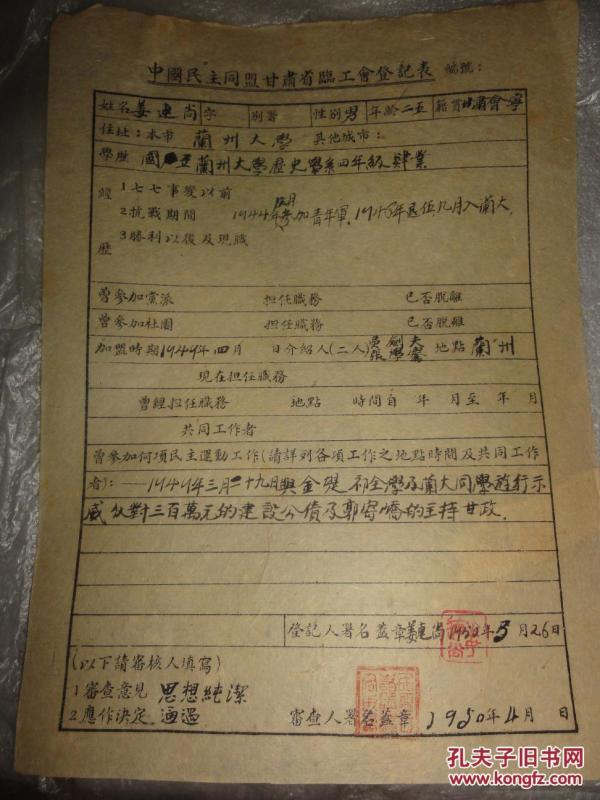 中國民主同盟甘肅省臨工會登記表 編號：
姓名 姜連尚 字 別署 性別 男 年齡 二五 籍貫 甘肅會寧
住址：本市 蘭州大學 其他城市：
學歷 國立蘭州大學歷史學系四年級肄業
經 1七七事變以前
2抗戰期間 1944年 月參加青年軍，1946年退伍九月入蘭大，
歷 3勝利以後及現職
曾參加黨派 担任職務 已否脫離
曾參加社團 担任職務 已否脫離
加盟時期1949年四月 日介紹人(二人) 吳劍夫 張學 地點 蘭州
現在担任職務
曾經担任職務 地點 時間自 年 月至 年 月
共同工作者
曾參加何項民主運動工作(請詳列各項工作之地點時間及共同工作
者)：一1949年三月二十九日與 學及蘭大同學遊行示
威反對三百萬元的建設公債及郭寄嶠的主持甘政.
登記人署名蓋章 姜連尚 1950年3月26日
(以下請審核人填寫)
1審查意見 思想純潔
2應作決定 通過 審查人署名蓋章 1950年4月 日
孔夫子旧书网
www.kongfz.com